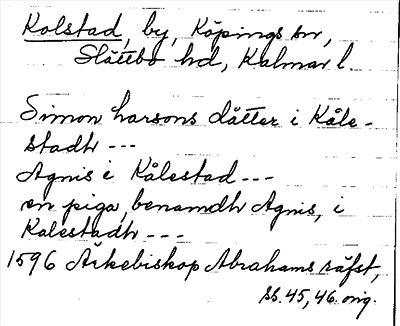 Kolstad, by, Köpings sn,
Slättbo hd, Kalmar l.
Simon harsons dåtter i Kåle-
stadh ---
Agnis i Kålestad ---
en piga, benamdh Agnis, i
Kalestadh ---
1596 Ärkebiskop Abrahams räfst,
ss. 45, 46 orig.